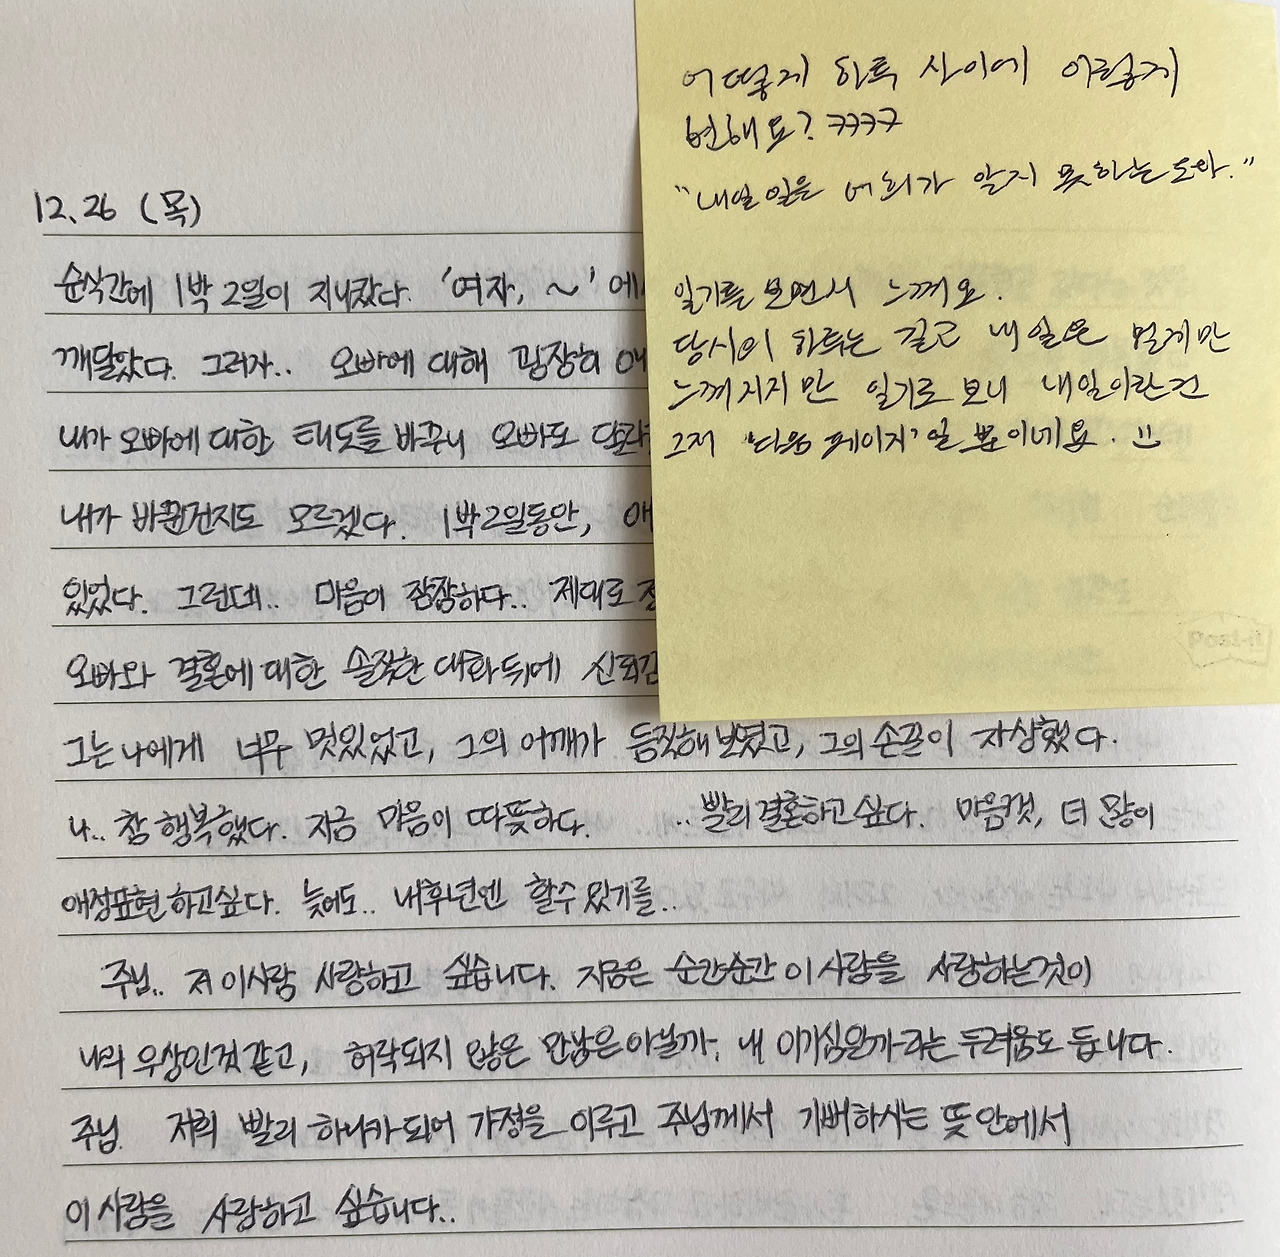 어떻게 하루 사이에 이렇게
변해요? ㅋㅋㅋㅋ
"내일 일은 너희가 알지 못하는도다."
일기를 보면서 느껴요.
당시의 하루는 길고 내일은 멀게만
느껴지지만 일기로 보니 내일이란건
그저 '다음 페이지'일 뿐이네요.
Post-it
12.26 (목)
순식간에 1박 2일이 지나갔다. '여자, ~' 에
깨달았다. 그러자.. 오빠에 대해 굉장히
내가 오빠에 대한 태도를 바꾸니 오빠도
내가 바뀐건지도 모르겠다. 1박2일동안,
있었다. 그런데.. 마음이 잠잠하다.. 제대로
오빠와 결혼에 대한 솔직한 대화 뒤에
그는 나에게 너무 멋있었고, 그의 어깨가 듬직해 보였고, 그의 손끝이 자상했다.
나.. 참 행복했다. 지금 마음이 따뜻하다. ..빨리 결혼하고 싶다. 마음껏, 더 많이
애정표현 하고싶다. 늦어도.. 내후년엔 할수 있기를..
주님.. 저 이사람 사랑하고 싶습니다. 지금은 순간순간 이 사람을 사랑하는것이
나의 우상인것 같고, 허락되지 않은 만남은 아닐까, 내 이기심일까라는 두려움도 듭니다.
주님. 저희 빨리 하나가 되어 가정을 이루고 주님께서 기뻐하시는 뜻 안에서
이 사람을 사랑하고 싶습니다..